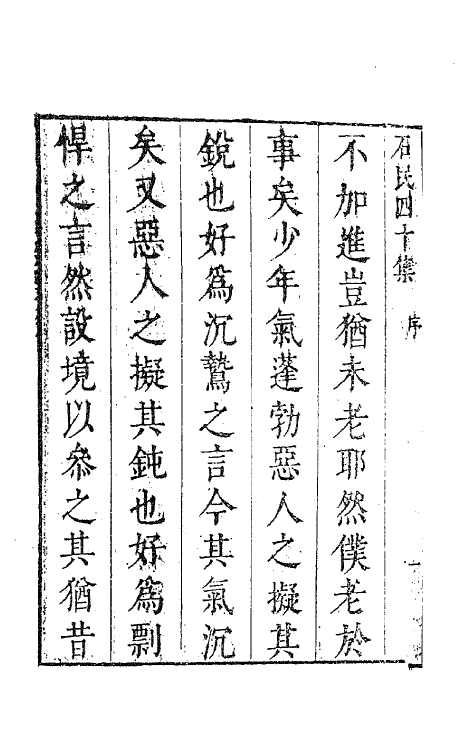 石民四十集　序　一
不加進豈猶未老耶然僕老於
事矣少年氣蓬勃惡人之擬其
銳也好爲沉鷙之言今其氣沉
矣又惡人之擬其鈍也好爲剽
悍之言然設境以叅之其猶昔